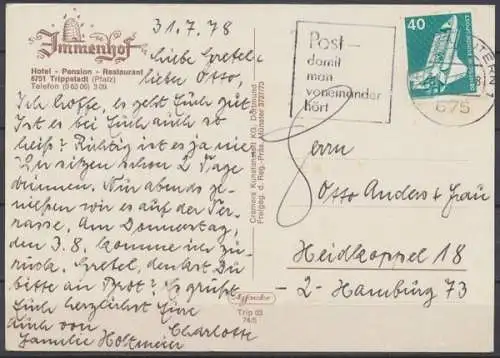 31.7.78
Immenhof
Hotel - Pension - Restaurant
6751 Trippstadt (Pfalz)
Telefon (0 63 06) 3 09
Liebe Gretel,
lieber Otto,
Ich hoffe, es geht Euch gut.
Ist es bei Euch auch so
heiß? Ruhig ist es ja nie
Wir sitzen schon 2 Tage
drinnen. Nur abends ge-
nießen wir es auf der Ter-
rasse. Am Donnerstag,
den 3.8. komme ich zu-
rück. Gretel, denkst Du
bitte an Brot? Es grüßt
Euch herzlichst Eure
Charlotte
Euch von
Familie Holtmeier
Cramers Kunstanstalt KG, Dortmund
Freigeg. d. Reg.-Präs. Münster 3731/73
Trip 03
74/5
Post-
damit
man
voneinander
hört
40
DEUTSCHE BUNDESPOST
675
Herrn
Otto Anders + Frau
Heidkoppel 18
2 - Hamburg 73